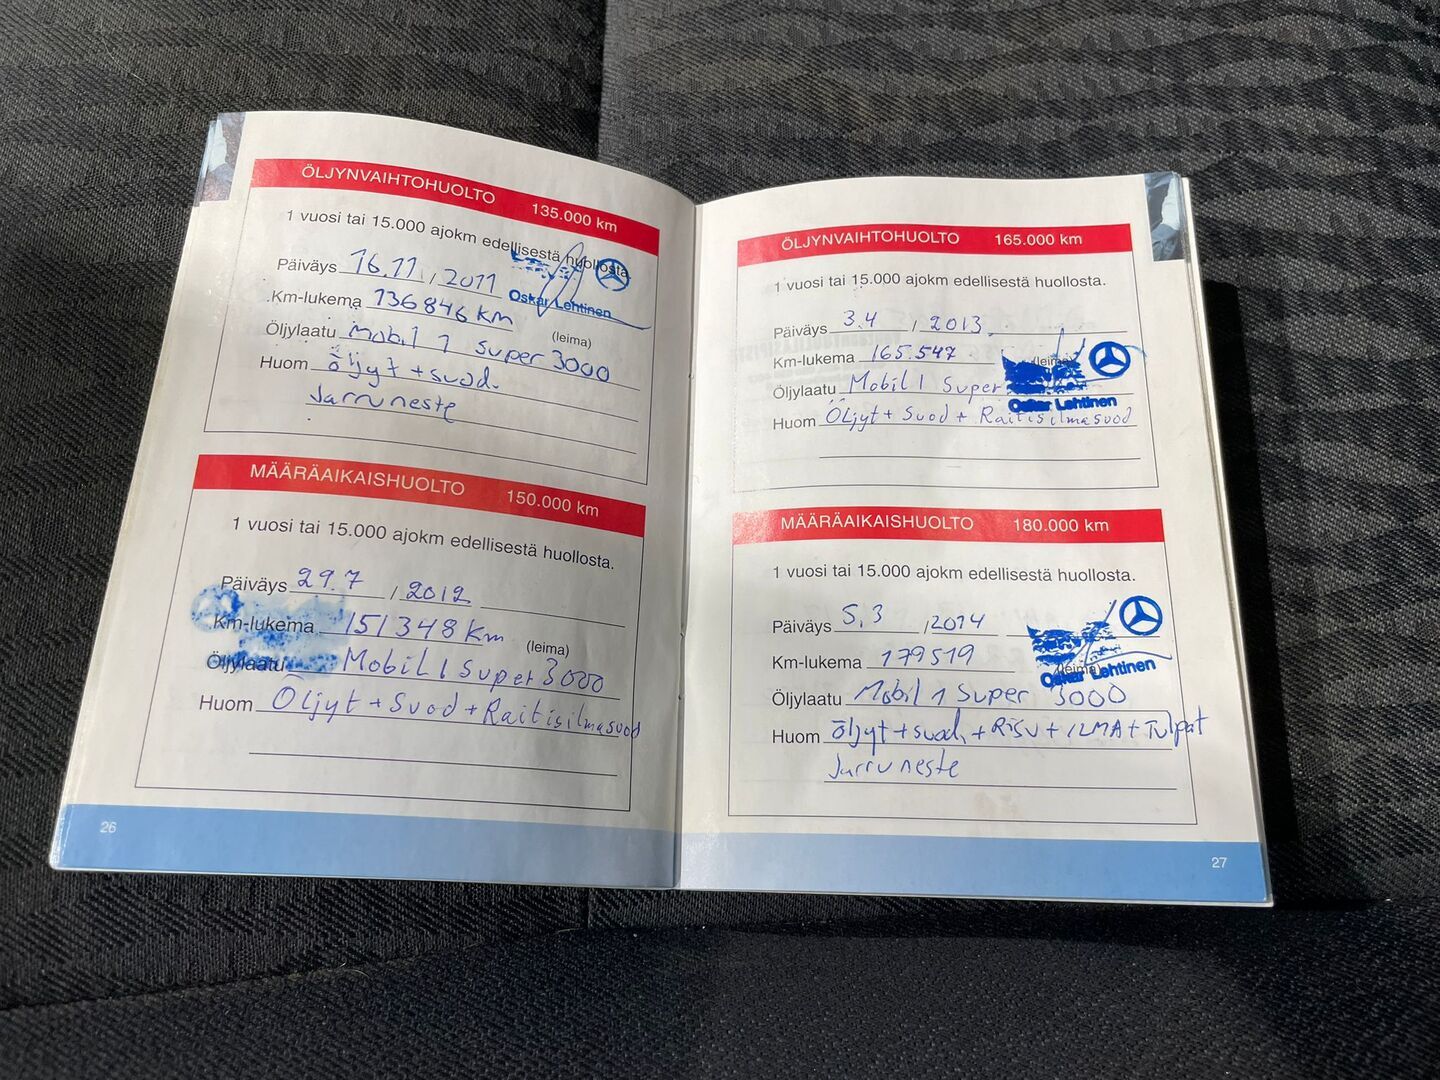 ÖLJYNVAIHTOHUOLTO 135.000 km
1 vuosi tai 15.000 ajokm edellisestä huollosta.
Päiväys 16.11 / 2011
Oskar Lehtinen
Km-lukema 136846 km
(leima)
Öljylaatu Mobil 1 super 3000
Huom öljyt + suod.
Jarruneste
MÄÄRÄAIKAISHUOLTO 150.000 km
1 vuosi tai 15.000 ajokm edellisestä huollosta.
Päiväys 29.7 / 2012
Km-lukema 151348 km
(leima)
Öljylaatu Mobil 1 Super 3000
Huom Öljyt + Suod + Raitisilmasuod
26
ÖLJYNVAIHTOHUOLTO 165.000 km
1 vuosi tai 15.000 ajokm edellisestä huollosta.
Päiväys 3.4 / 2013
Km-lukema 165.547 (leima)
Öljylaatu Mobil 1 Super
Oskar Lehtinen
Huom Öljyt + Suod + Raitisilmasuod
MÄÄRÄAIKAISHUOLTO 180.000 km
1 vuosi tai 15.000 ajokm edellisestä huollosta.
Päiväys 5.3 / 2014
Km-lukema 179519 (leima)
Oskar Lehtinen
Öljylaatu Mobil 1 Super 3000
Huom öljyt + suod. + RISU + ILMA + Tulpat
Jarruneste
27